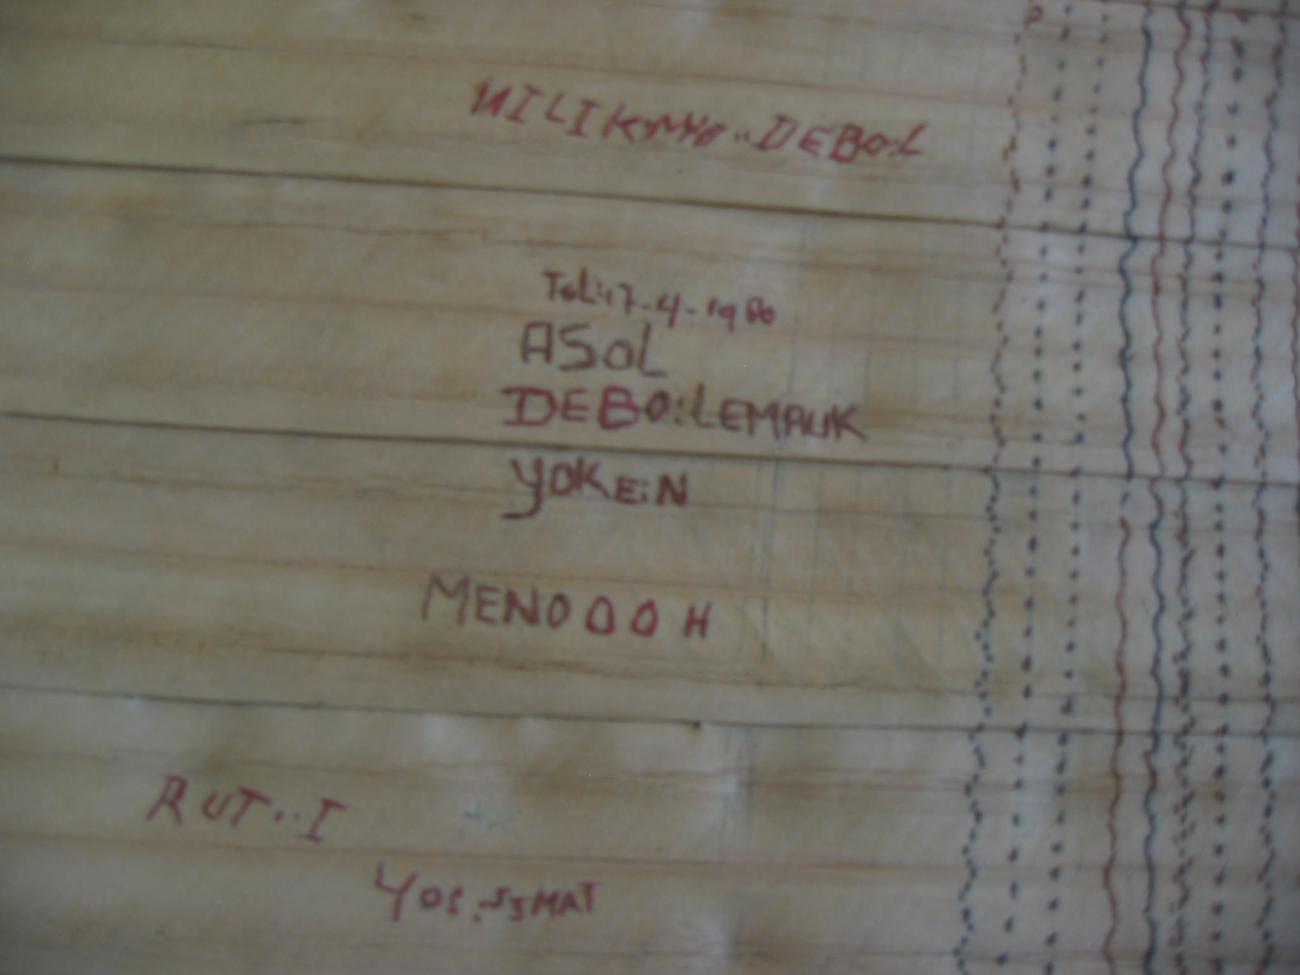 MILIKNYA..DEBO:L
TGL:17-4-1980
ASOL
DEBO:LEMAUK
YOKE:N
MENOOOH
RUT..I